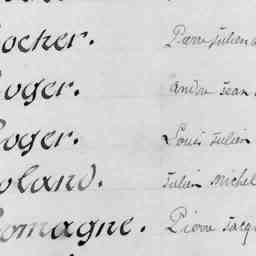 ocher. Pierre Julien
oger. andré Jean
oger. Louis Julien
oland. Julien Michel
omagne. Pierre Jacq